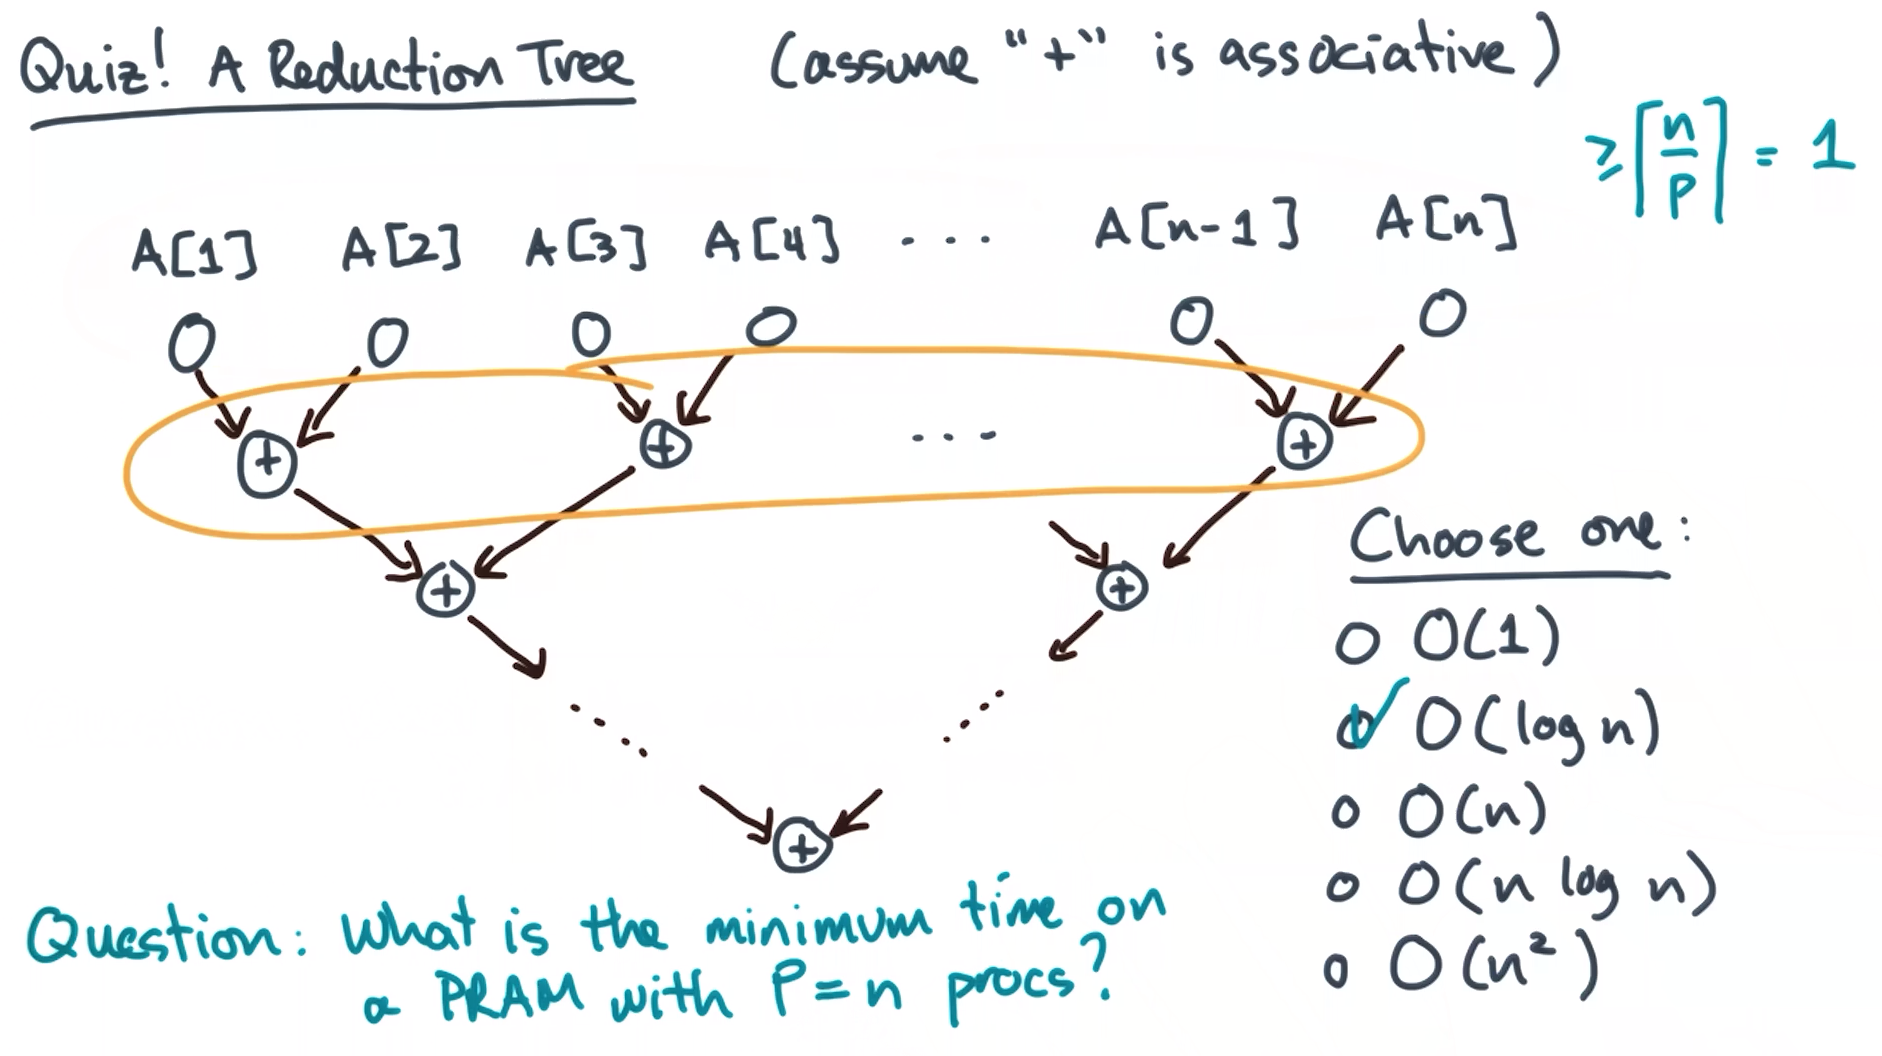 Quiz! A Reduction Tree (assume "+" is associative)
≥⌈n/P⌉ = 1
A[1] A[2] A[3] A[4] ... A[n-1] A[n]
+ + ... +
+ +
+
Choose one:
O(1)
✓ O(log n)
O(n)
O(n log n)
O(n²)
Question: What is the minimum time on
a PRAM with P=n procs?